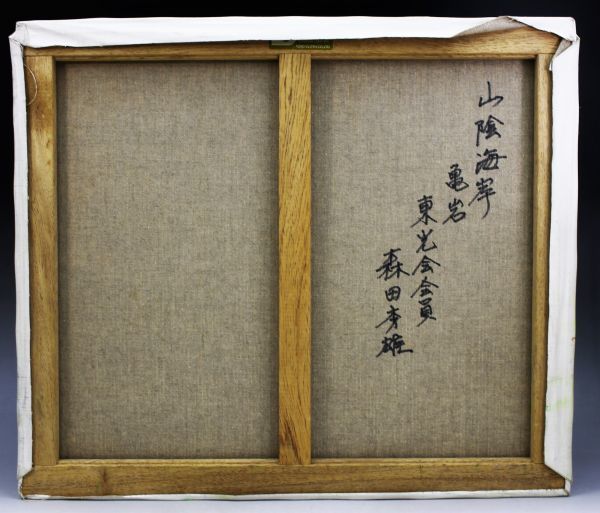 山陰海岸
亀岩
東光会会員
森田秀雄